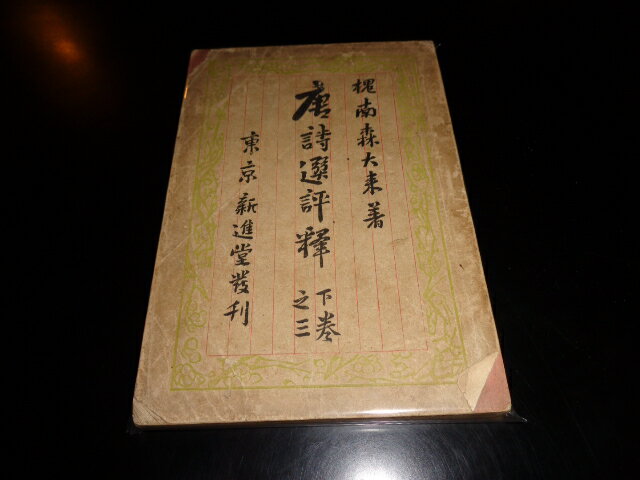 槐南森大来著
唐詩選評釋
下卷
之三
東京新進堂發刊